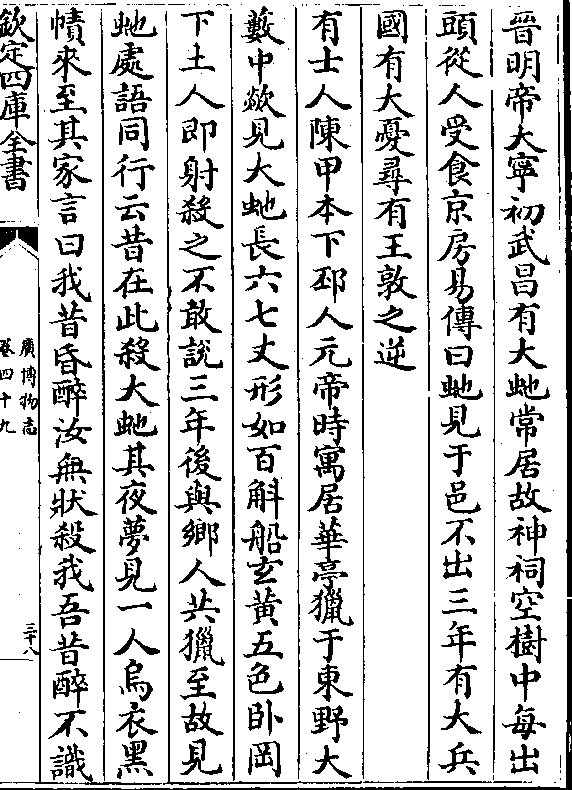 晉明帝大寧初武昌有大虵常居故神祠空樹中每出
頭從人受食京房易傳曰虵見于邑不出三年有大兵
國有大憂尋有王敦之逆
有士人陳甲本下邳人元帝時寓居華亭獵于東野大
藪中欻見大虵長六七丈形如百斛船玄黃五色卧岡
下土人即射殺之不敢說三年後與鄉人共獵至故見
虵處語同行云昔在此殺大虵其夜夢見一人烏衣黑
幘來至其家言曰我昔昏醉汝無狀殺我吾昔醉不識
欽定四庫全書
廣博物志
卷四十九
三十八